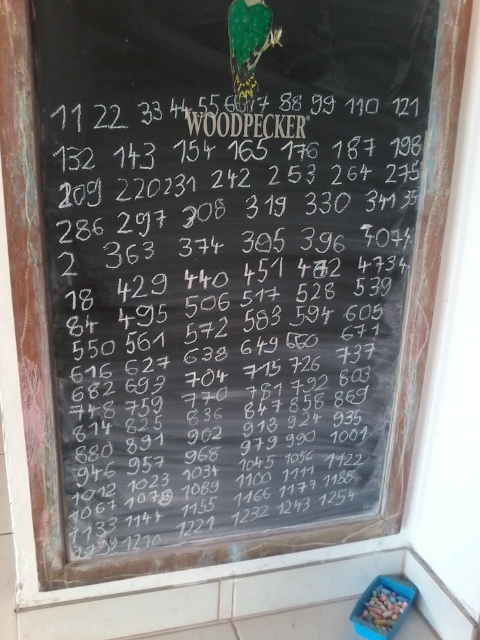 11 22 33 44 55 66 77 88 99 110 121
WOODPECKER
132 143 154 165 176 187 198
209 220 231 242 253 264 275
286 297 308 319 330 341 35
2 363 374 385 396 4074
18 429 440 451 462 4734
84 495 506 517 528 539
550 561 572 583 594 605
616 627 638 649 660 671
682 693 704 715 726 737
748 759 770 781 792 803
814 825 836 847 858 869
880 891 902 913 924 935
946 957 968 979 990 1001
1012 1023 1034 1045 1056
1067 1078 1089 1100 1111 1122
1133 1144 1155 1166 1177 1188
1199 1210 1221 1232 1243 1254